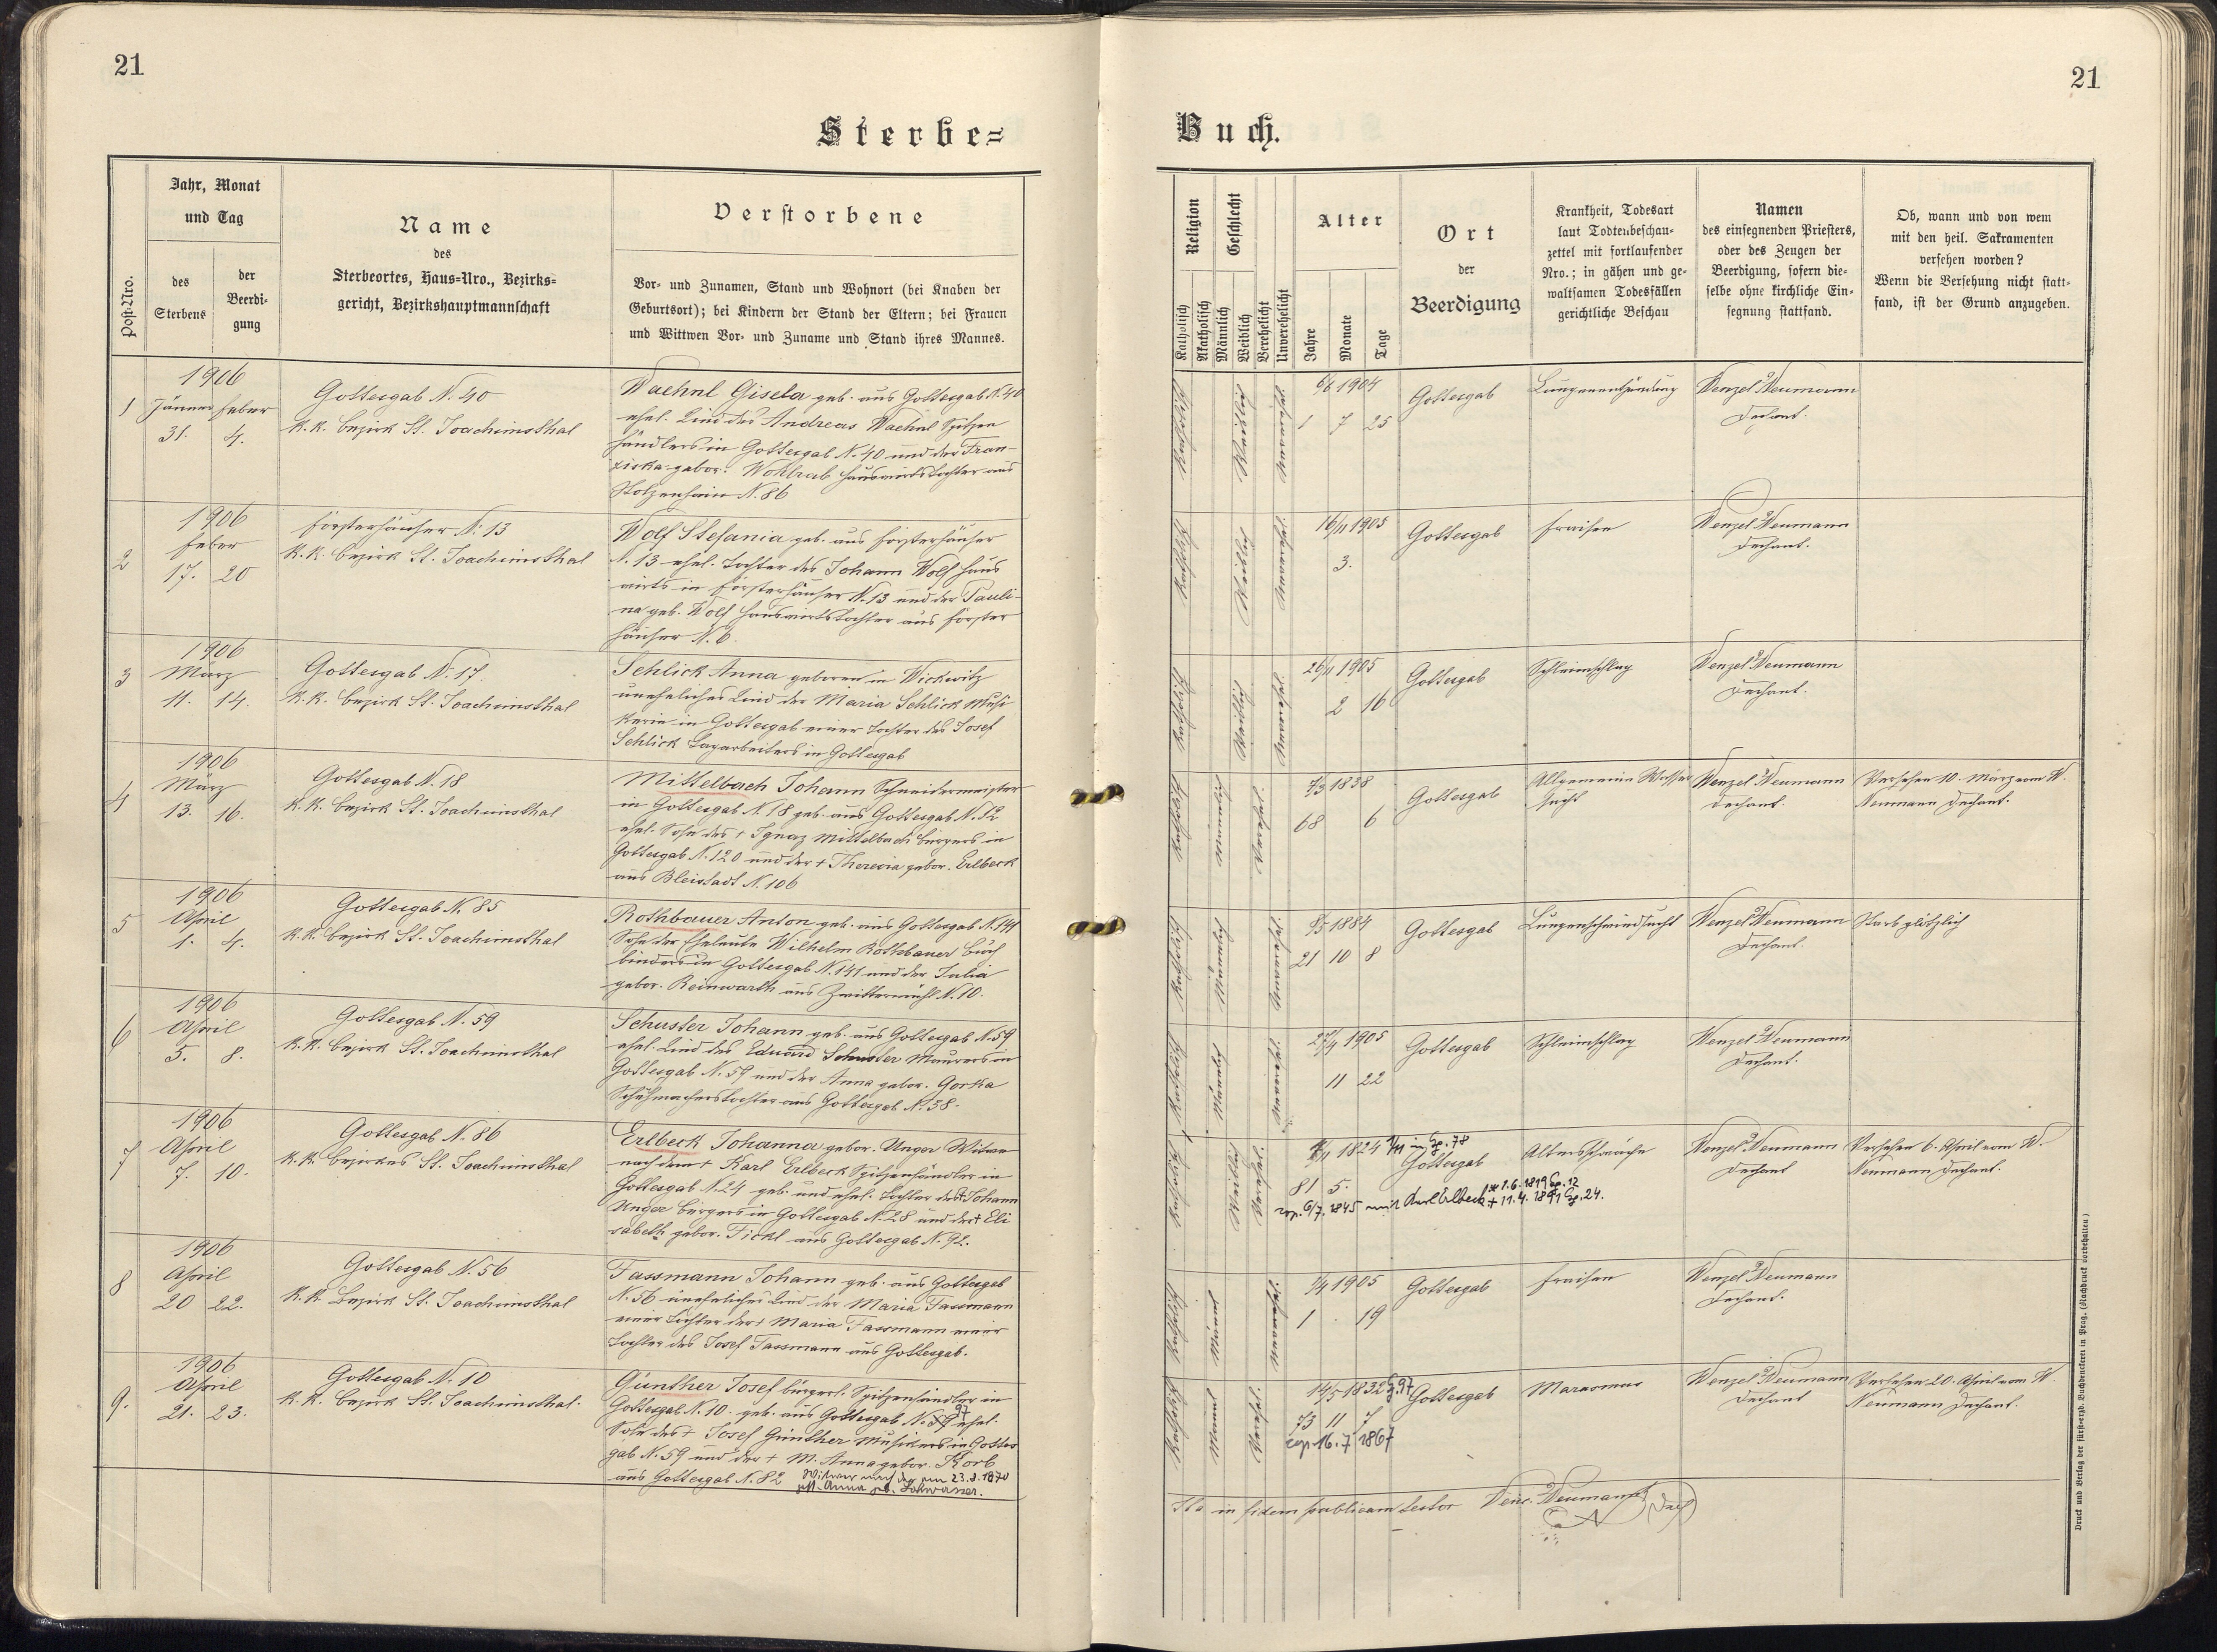 21
21
Sterbe=
Buch.
Post-Nro.
Jahr, Monat
und Tag
des
Sterbens
der
Beerdi-
gung
Name
des
Sterbeortes, Haus=Nro., Bezirks=
gericht, Bezirkshauptmannschaft
Verstorbene
Vor- und Zunamen, Stand und Wohnort (bei Knaben der
Geburtsort); bei Kindern der Stand der Eltern; bei Frauen
und Wittwen Vor- und Zuname und Stand ihres Mannes.
Religion
Katholisch
Akatholisch
Geschlecht
Männlich
Weiblich
Verehelicht
Unverehelicht
Alter
Jahre
Monate
Tage
Ort
der
Beerdigung
Krankheit, Todesart
laut Todtenbeschau-
zettel mit fortlaufender
Nro.; in gähen und ge-
waltsamen Todesfällen
gerichtliche Beschau
Namen
des einsegnenden Priesters,
oder des Zeugen der
Beerdigung, sofern die-
selbe ohne kirchliche Ein-
segnung stattfand.
Ob, wann und von wem
mit den heil. Sakramenten
versehen worden?
Wenn die Versehung nicht statt-
fand, ist der Grund anzugeben.
1
1906
Jänner Feber
31. 4.
Gottesgab N. 40
k.k. Bezirk St. Joachimsthal
Waehnl Gisela geb. aus Gottesgab N. 40
ehel. Kind des Andreas Waehnl Spitzen
händlers in Gottesgab N. 40 und der Fran-
ziska gebor. Wohlrab Hauswirtstochter aus
Stolzenhain N. 86
Katholisch
Weiblich
6/6 1904
1 7 25
Gottesgab
Lungenentzündung
Wenzel Neumann
Dechant.
2
1906
Feber
17. 20
Försterhäuser N. 13
k.k. Bezirk St. Joachimsthal
Wolf Stefania geb. aus Försterhäuser
N. 13 ehel. Tochter des Johann Wolf Haus
wirts in Försterhäuser N. 13 und der Pauli-
na geb. Wolf Hauswirtstochter aus Förster
häuser N. 6.
Katholisch
Weiblich
16/11 1905
3.
Gottesgab
Fraisen
Wenzel Neumann
Dechant.
3
1906
März
11. 14.
Gottesgab N. 17.
k.k. Bezirk St. Joachimsthal
Schlick Anna geboren in Wickwitz
uneheliches Kind der Maria Schlick Musi
kerin in Gottesgab einer Tochter des Josef
Schlick Tagarbeiters in Gottesgab
Katholisch
Weiblich
26/11 1905
2 16
Gottesgab
Schleimschlag
Wenzel Neumann
Dechant.
4
1906
März
13. 16.
Gottesgab N. 18
k.k. Bezirk St. Joachimsthal
Mittelbach Johann Schneidermeister
in Gottesgab N. 18 geb. aus Gottesgab N. 12
ehel. Sohn des + Ignaz Mittelbach Bürgers in
Gottesgab N. 120 und der + Theresia gebor. Erlbeck
aus Bleistadt N. 106
Katholisch
männlich
Verehel.
7/3 1838
68 6
Gottesgab
Allgemeine Wasser
sucht
Wenzel Neumann
Dechant.
Versehen 10. März vom W.
Neumann Dechant.
5
1906
April
1. 4.
Gottesgab N. 85
k.k. Bezirk St. Joachimsthal
Rothbauer Anton geb. aus Gottesgab N. 141
Sohn der Eheleute Wilhelm Rothbauer Buch
binders in Gottesgab N. 141 und der Julia
gebor. Reinwarth aus Zwittermühl N. 10.
Katholisch
Männlich
Unverehel.
9/5 1884
21 10 8
Gottesgab
Lungenschwindsucht
Wenzel Neumann
Dechant.
Starb plötzlich
6
1906
April
5. 8.
Gottesgab N. 59
k.k. Bezirk St. Joachimsthal
Schuster Johann geb. aus Gottesgab N. 59
ehel. Kind des Eduard Schuster Maurers in
Gottesgab N. 59 und der Anna gebor. Gorka
Schuhmacherstochter aus Gottesgab N. 38.
Katholisch
Männlich
Unverehel.
27/4 1905
11 22
Gottesgab
Schleimschlag
Wenzel Neumann
Dechant.
7
1906
April
7. 10.
Gottesgab N. 86
k.k. Bezirkes St. Joachimsthal
Erlbeck Johanna gebor. Unger Witwe
nach dem + Karl Erlbeck Spitzenhändler in
Gottesgab N. 24 geb. und ehel. Tochter des + Johann
Unger Bürgers in Gottesgab N. 28 und der + Eli
sabeth gebor. Fickl aus Gottesgab N. 92.
Katholisch
Weiblich
Verehel.
1824 1/11 in Gg. 78
81 5.
cop. 6/7. 1845 mit Karl Erlbeck * 1.6.1819 Gg. 12
+ 11.4.1891 Gg. 24.
Gottesgab
Altersschwäche
Wenzel Neumann
Dechant
Versehen 6. April vom W.
Neumann Dechant.
8
1906
April
20 22.
Gottesgab N. 56
k.k. Bezirk St. Joachimsthal
Fassmann Johann geb. aus Gottesgab
N. 56 uneheliches Kind der Maria Fassmann
einer Tochter der + Maria Fassmann einer
Tochter des Josef Fassmann aus Gottesgab.
Katholisch
Männl
Unverehel.
1/4 1905
1 . 19
Gottesgab
Fraisen
Wenzel Neumann
Dechant.
9.
1906
April
21. 23.
Gottesgab N. 10
k.k. Bezirk St. Joachimsthal.
Günther Josef bürgerl. Spitzenhändler in
Gottesgab N. 10. geb. aus Gottesgab N. 97 ehel.
Sohn des + Josef Günther Musikers in Gottes
gab N. 59 und der + M. Anna gebor. Korb
aus Gottesgab N. 82 Witwer nach der am 23.8.1870
gest. Anna geb. Lohwasser.
Katholisch
Männl
Verehel.
14/5 1832 G. 97
73 11 7
cop. 16.7.1867
Gottesgab
Marasmus
Wenzel Neumann
Dechant
Versehen 20. April vom W.
Neumann Dechant.
Ita in fidem publicam testor Venc. Neumann
Druck und Verlag der fürsterzb. Buchdruckerei in Prag. (Nachdruck vorbehalten)